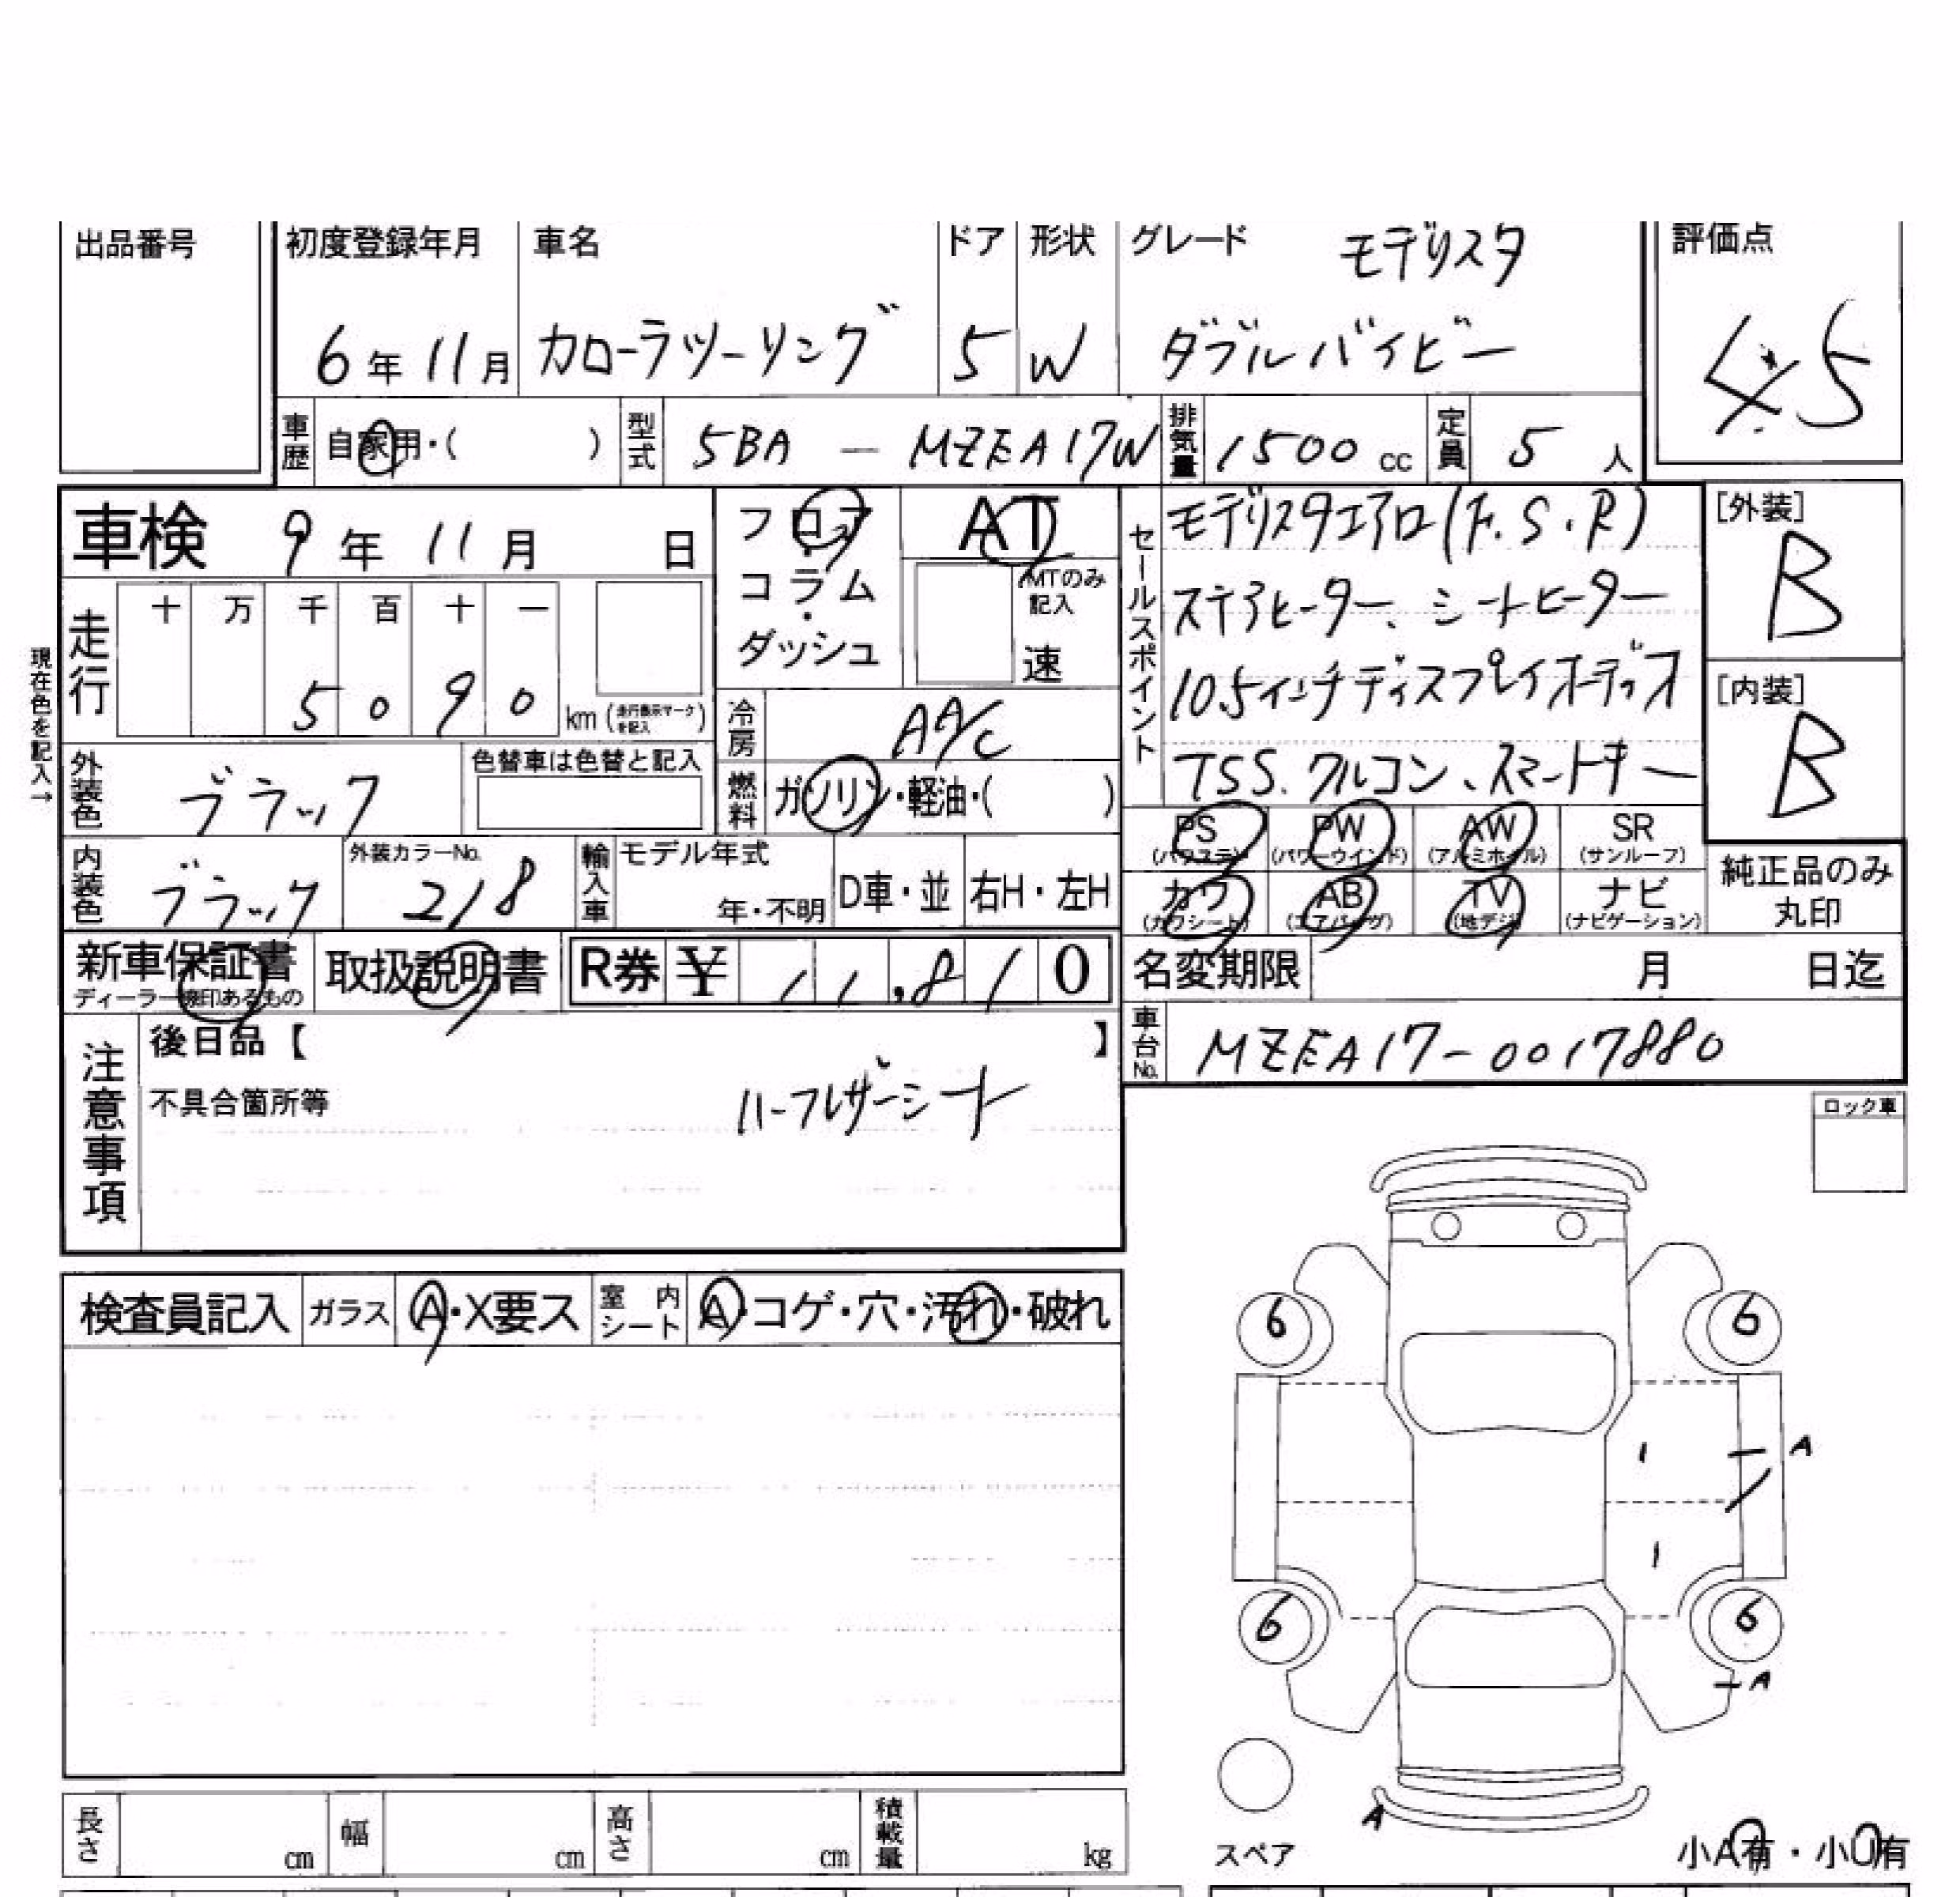 出品番号
初度登録年月 6年11月
車名 カローラツーリング
ドア 5
形状 W
グレード モデリスタ
ダブルバイビー
評価点 4.5
車歴 自家用・( )
型式 5BA － MZEA17W
排気量 1500 cc
定員 5 人
車検 9年11月 日
フロア・コラム・ダッシュ
AT
MTのみ記入
速
現在色を記入→
走行 十 万 千 百 十 一
5 0 9 0 km (走行表示マークを記入)
冷房 AAC
燃料 ガソリン・軽油・( )
外装色 ブラック
色替車は色替と記入
内装色 ブラック
外装カラーNo. 218
輸入車 モデル年式
年・不明
D車・並
右H・左H
セールスポイント
モデリスタエアロ(F.S.R)
ステアヒーター、シートヒーター
10.5インチディスプレイオーディオ
TSS.クルコン、スマートキー
[外装] B
[内装] B
PS (パワステ)
PW (パワーウインド)
AW (アルミホイル)
SR (サンルーフ)
カワ (カワシート)
AB (エアバッグ)
TV (地デジ)
ナビ (ナビゲーション)
純正品のみ丸印
新車保証書
ディーラー検印あるもの
取扱説明書
R券 ¥ 11,810
名変期限 月 日迄
車台No. MZEA17-0017880
注意事項
後日品【 】
不具合箇所等
ハーフレザーシート
ロック車
検査員記入 ガラス A・X要ス 室内シート A・コゲ・穴・汚れ・破れ
6 6
A
6 6
A
A
スペア
小A有・小U有
長さ cm 幅 cm 高さ cm 積載量 kg